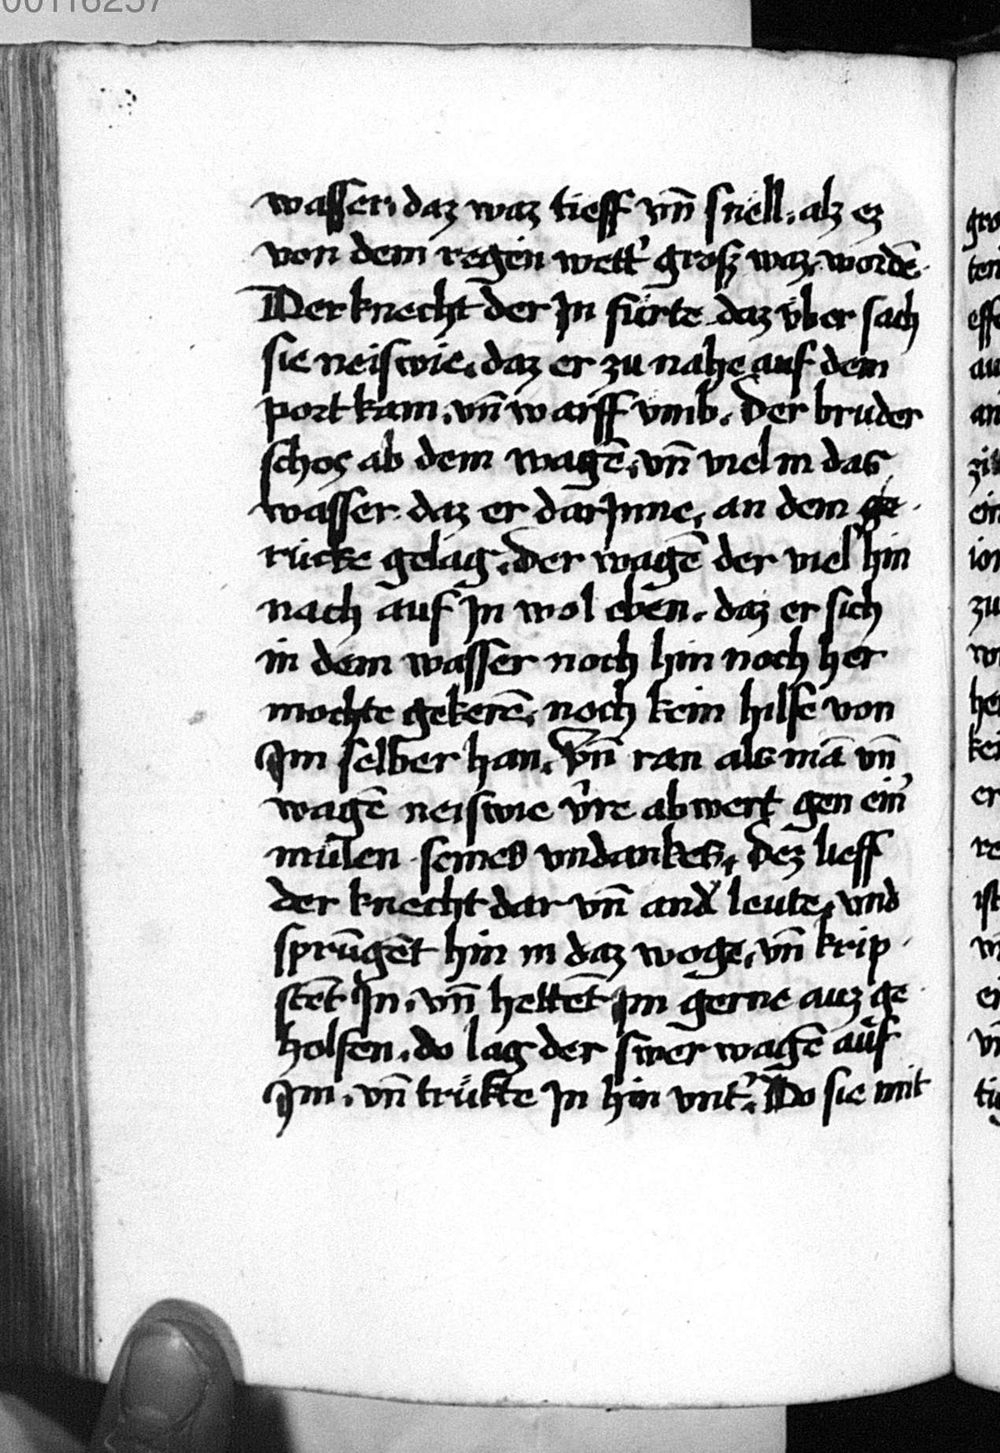 wasser. daz waz tieff vn̄ snell. alz ez
von dem regen wett' grosz waz wordē.
Der knecht der Jn fürte daz v̈ber sach
sie neiswie. daz er zu nahe auf dem
port kam. vn̄ warff vmb. Der bruder
schos ab dem wagē. vn̄ viel in das
wasser. daz er dar Jnne, an dem ge
rücke gelag. Der wagē der viel hin
nach auf Jn wol eben. daz er sich
in dem wasser noch hin noch her
mochte gekerē. noch kein hilfe von
Jm selber han. Vn̄ ran als mā vn̄
wagē neiswie v̈re abwert gen ein'
mülen seines vndankes. Dez lieff
der knecht dar vn̄ and' leute. vnd
sprūgēt hin in daz woge. vn̄ krip
stēt Jn. vn̄ hettēt Jm gerne auz ge
holfen. do lag der swer wagē auf
Jm. vn̄ trükte Jn hin vnt'. Do sie mit